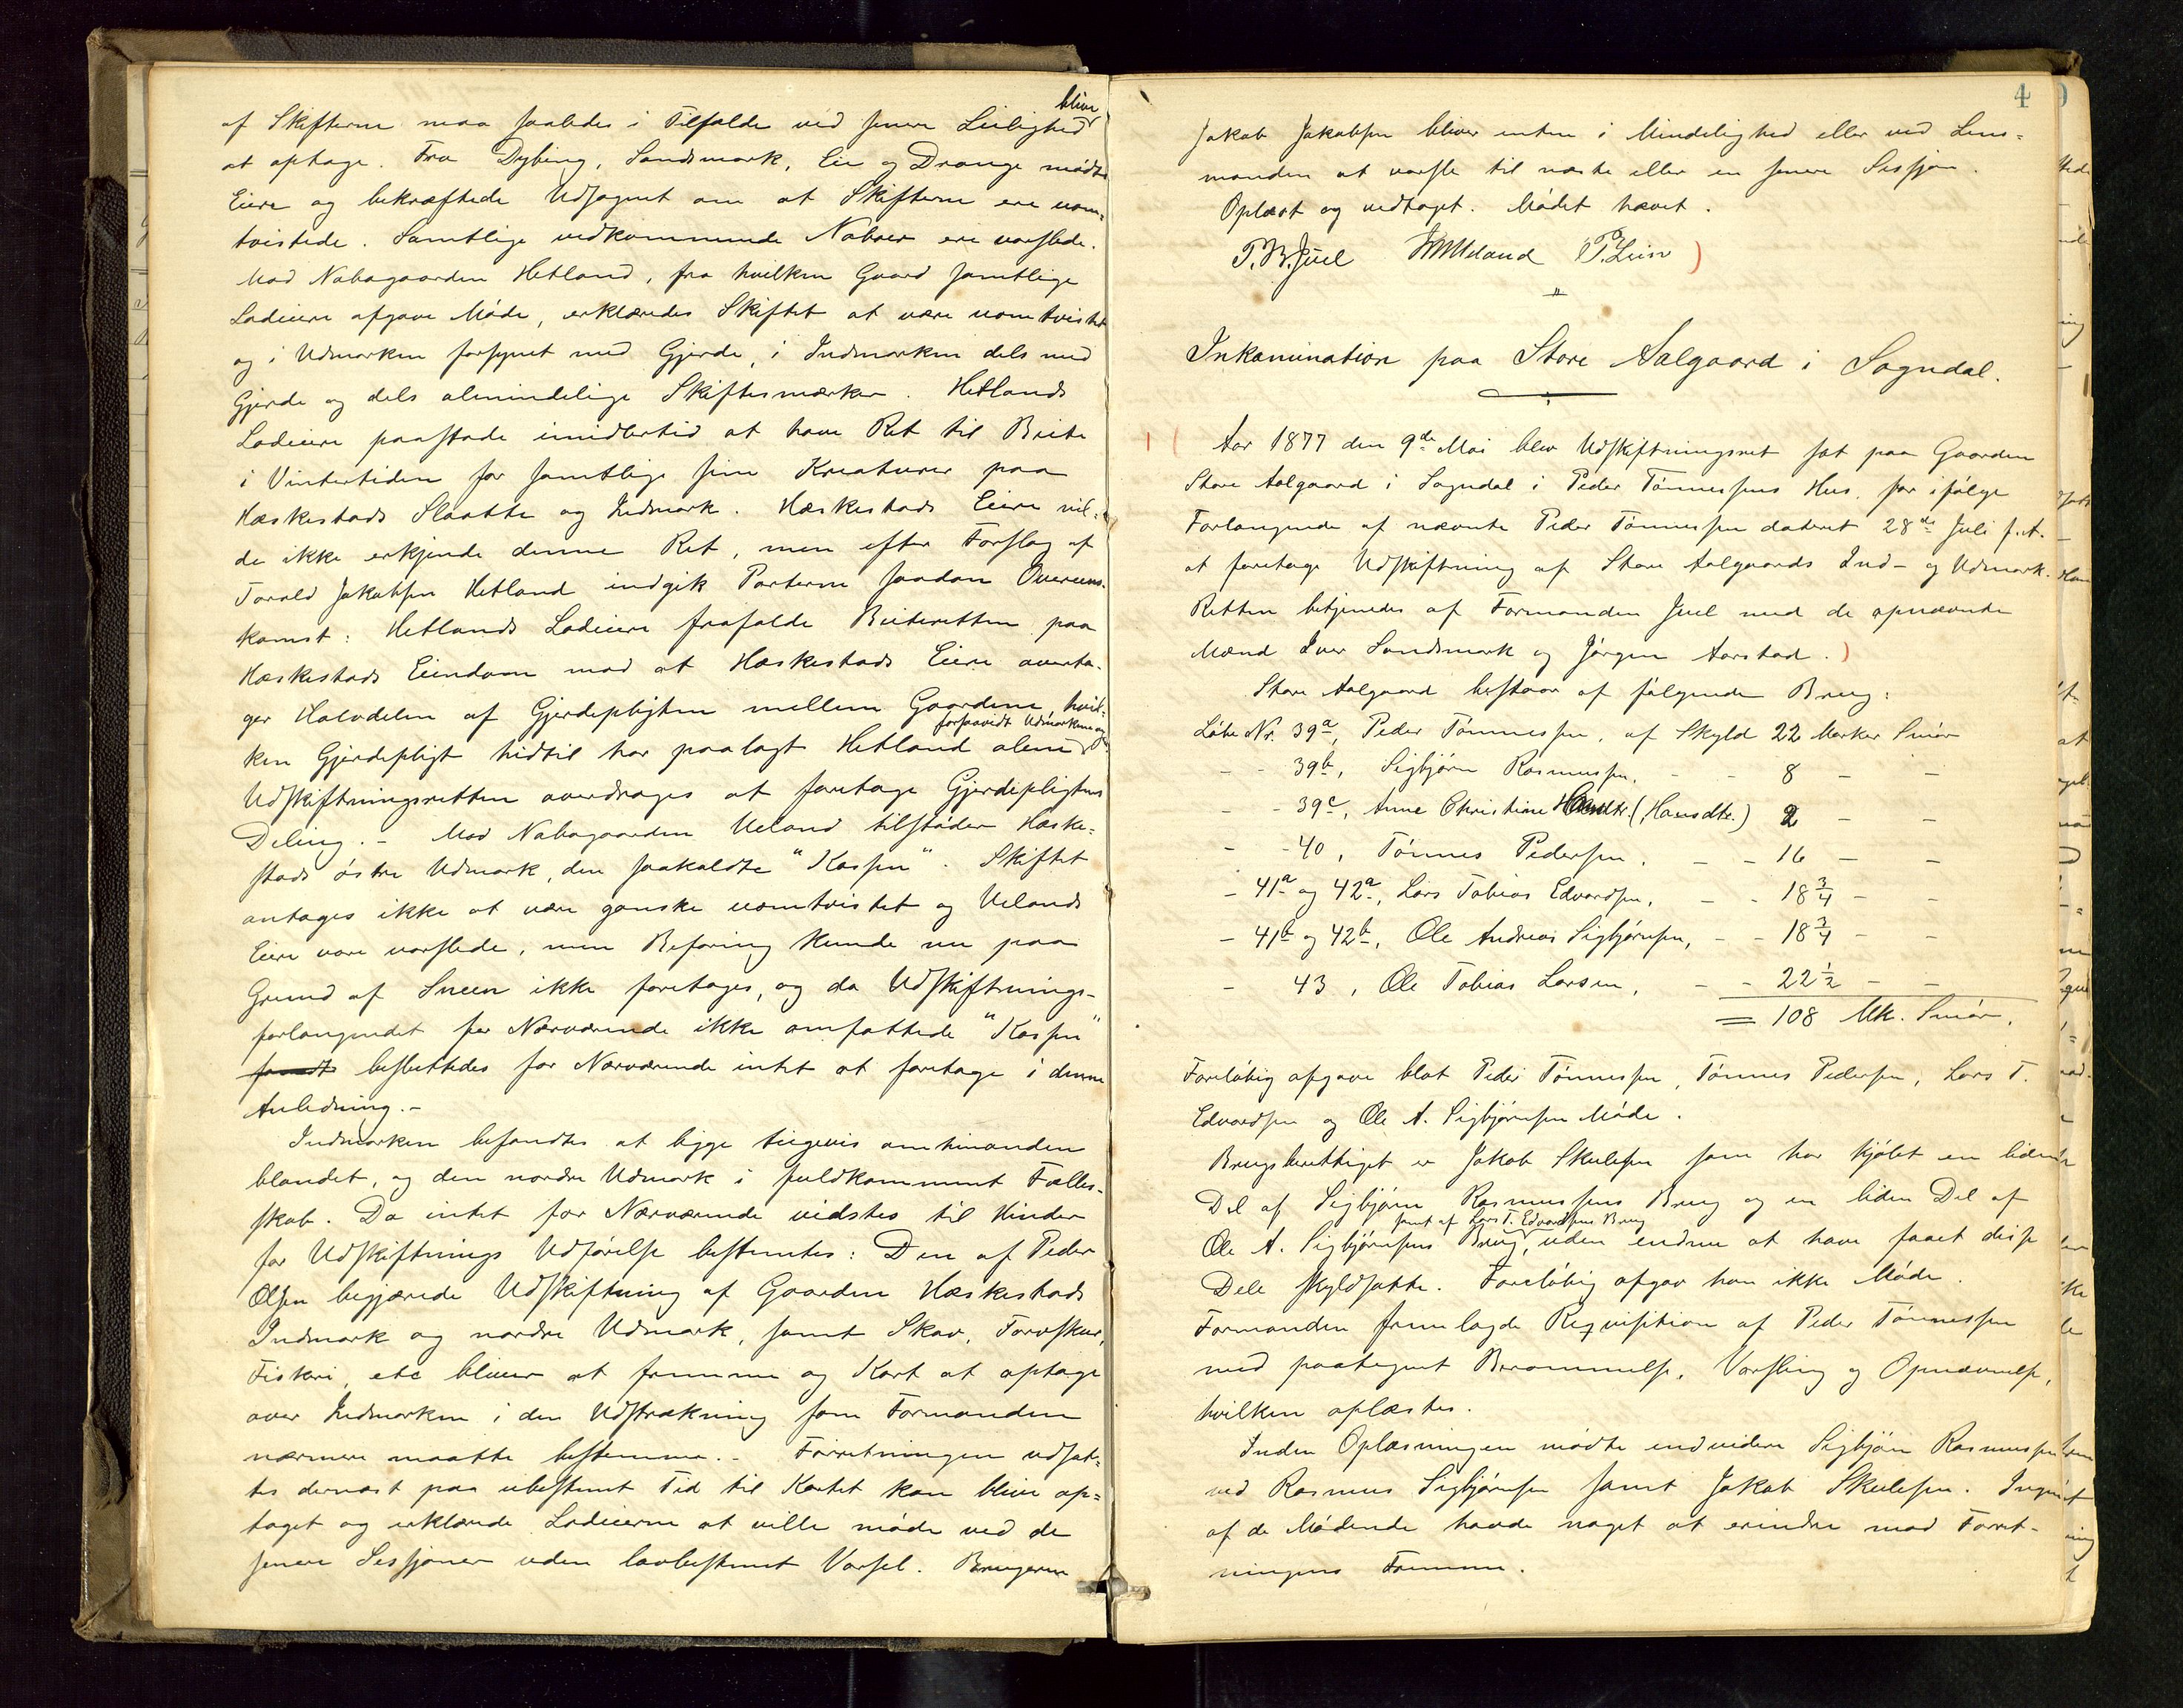 af Skifterne maa saaledes i Tilfælde ved senere Leilighed blive
at optage. Fra Dybing, Sandsmark, Eie og Drange mødte
Eiere og bekræftede Udsagnet om at Skifterne ere uom-
tvistede. Samtlige vedkommende Naboer ere varslede.
Mod Nabogaarden Hetland, fra hvilken Gaard samtlige
Lodeiere afgave Møde, erklæredes Skiftet at være uomtvistet
og i Udmarken forsynet med Gjerde, i Indmarken dels med
Gjerde og dels almindelige Skiftesmærker. Hetlands
Lodeiere paastode imidlertid at have Ret til Beite
i Vintertiden for samtlige sine Kreaturer paa
Hæskestads Slaatte og Indmark. Hæskestads Eiere vil-
de ikke erkjende denne Ret, men efter Forslag af
Torald Jakobsen Hetland indgik Parterne saadan Overens-
komst: Hetlands Lodeiere frafalde Beiteretten paa
Hæskestads Eiendom mod at Hæskestads Eiere overta-
ger Halvdelen af Gjerdepligten mellem Gaardene, hvil-
forsaavidt Udmarken og
ken Gjerdepligt hidtil har paalagt Hetland alene
Udskiftningsretten overdrages at foretage Gjerdepligtens
Deling. - Mod Nabogaarden Ueland tilstøder Hæske-
stads østre Udmark, den saakaldte "Kassen". Skiftet
antages ikke at være ganske uomtvistet og Uelands
Eiere vare varslede, men Befaring kunde nu paa
Grund af Sneen ikke foretages, og da Udskiftnings-
forlangendet for Nærværende ikke omfattede "Kassen"
besluttedes for Nærværende intet at foretage i denne
Anledning. -
Indmarken befandtes at ligge teigevis om hinanden
blandet, og den nordre Udmark i fuldkomment Fælles-
skab. Da intet for Nærværende vidstes til Hinder
for Udskiftnings Udførelse bestemtes: Den af Peder
Olsen begjærede Udskiftning af Gaarden Hæskestads
Indmark og nordre Udmark, samt Skov, Torvskur,
Fiskeri, etc bliver at fremme og Kart at optage
over Indmarken i den Udstrækning som Formanden
nærmere maatte bestemme. - Forretningen udsat-
tes dernæst paa ubestemt Tid til Kartet kan blive op-
taget og erklærede Lodeierne at ville møde ved de
senere Sessjoner uden lovbestemt Varsel. Brugerne
4
Jakob Jakobsen bliver enten i Mindelighed eller ved Lens-
manden at varsle til næste eller en senere Sessjon.
Oplæst og vedtaget. Mødet hævet.
T. B. Juel Ueland
Inkamination paa Store Aalgaard i Sogndal.
Aar 1877 den 9de Mai blev Udskiftningsret sat paa Gaarden
Store Aalgaard i Sogndal i Peder Tønnessens Hus, for ifølge
Forlangende af nævnte Peder Tønnessen dateret 28de Juli f. A.
at foretage Udskiftning af Store Aalgaards Ind- og Udmark.
Retten betjenedes af Formanden Juel med de opnævnte
Mænd Iver Sandsmark og Jørgen Aarstad.)
Store Aalgaard bestaar af følgende Brug:
Løbe Nr. 39a, Peder Tønnessen, af Skyld 22 Marker Smør
- - 39b, Sigbjørn Rasmussen, - - 8 - -
- - 39c, Anne Christine (Hansdtr.) 2 - -
- - 40, Tønnes Pedersen. - - 16 - -
- 41a og 42a, Lars Tobias Edvardsen, - - 18 3/4 - -
- 41b og 42b, Ole Andreas Sigbjørnsen, - - 18 3/4 - -
- 43, Ole Tobias Larsen, - - 22 1/2 - -
= 108 Mk. Smør.
Foreløbig afgave blot Peder Tønnessen, Tønnes Pedersen, Lars T.
Edvardsen og Ole A. Sigbjørnsen Møde.
Brugsberettiget er Jakob Skulesen som har kjøbt en liden
Del af Sigbjørn Rasmussens Brug og en liden Del af
samt af Lars T. Edvardsens Brug
Ole A. Sigbjørnsens Brug, uden endnu at have faaet disse
Dele skyldsatte. Foreløbig afgav han ikke Møde.
Formanden fremlagde Reqvisition af Peder Tønnessen
med paategnet Berammelse, Varsling og Opnævnelse,
hvilken oplæstes.
Inden Oplæsningen mødte endvidere Sigbjørn Rasmussen
ved Rasmus Sigbjørnsen samt Jakob Skulesen. Ingen
af de Mødende havde noget at erindre mod Forret-
ningens Fremme.